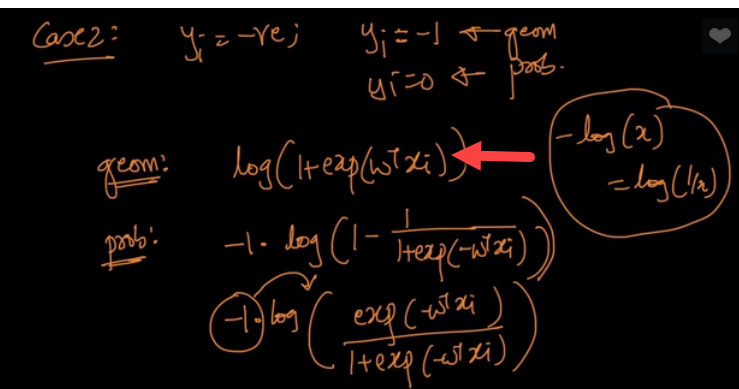 Case2: yi = -ve; yi = -1 ← geom
yi=0 ← prob.
-log(x)
= log(1/x)
geom: log(1+exp(wᵀxi))
prob: -1. log(1 - 1/(1+exp(-wᵀxi)))
-1. log(exp(-wᵀxi)/(1+exp(-wᵀxi)))